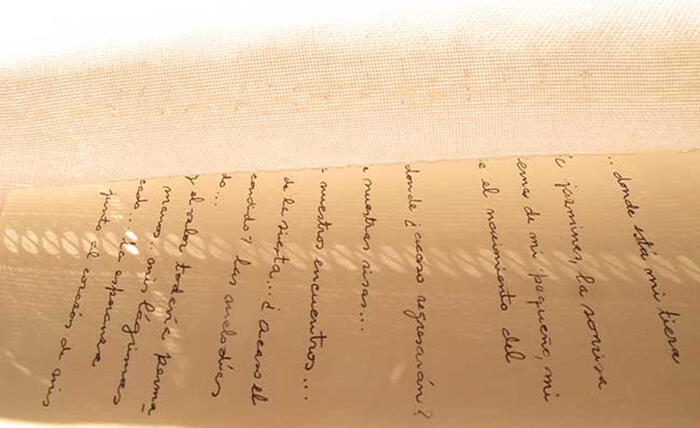 ... donde está mi tierra
jazmines, la sonrisa
de mi pequeño, mi
e el nacimiento del
donde ¿acaso regresarán?
nuestras risas...
nuestros encuentros...
de la siesta... ¿Acaso el
y las melodías
...
y el valor todavía perma-
manos... mis lágrimas
cado... la esperanza
junto al corazón de mis